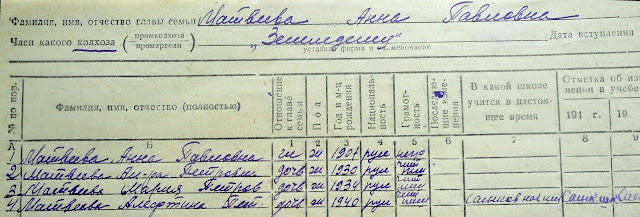 Фамилия, имя, отчество главы семьи Матвеева Анна Павловна
Член какого колхоза (промколхоза промартели) Дата вступления
уставная форма и наименование
№ по пор. Фамилия, имя, отчество (полностью) Отношение к главе семьи Пол Год и м-ц рождения Националь-ность Грамот-ность Последую-щие изме-нения В какой школе учится в настоя-щее время Отметка об из
нении в учебе
194 г. 19
А Б 1 2 3 4 5 6 7 8 9
1 Матвеева Анна Павловна гс ж 1907 рус негр
2 Матвеева Петровна дочь ж 1930 рус
3 Матвеева Мария Петров дочь ж 1934 рус
4 Матвеева Пет дочь ж 1940 рус